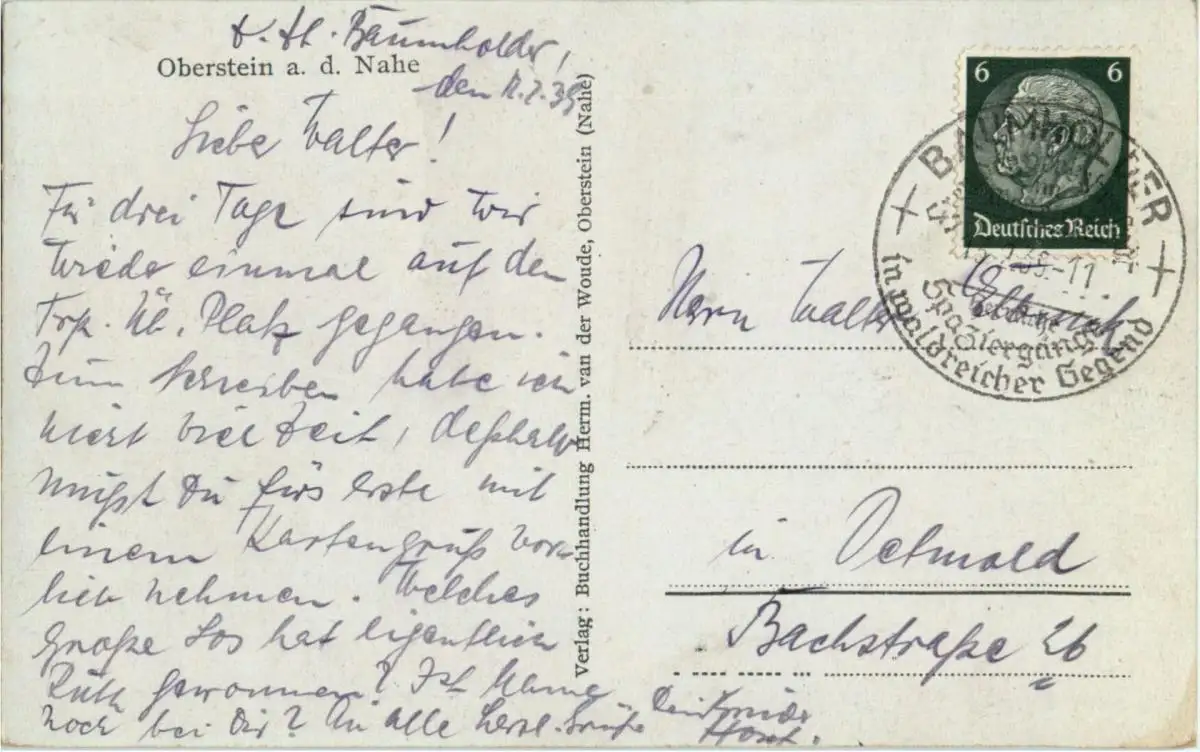 Oberstein a. d. Nahe
Baumholder,
den
Liebe Walter!
Für drei Tage sind wir
wieder einmal auf den
Trp. Üb. Platz gegangen.
Zum Schreiben habe ich
nicht viel Zeit, deßhalb
mußt Du fürs erste mit
einem Kartengruß vor-
lieb nehmen. Welches
große Los hat eigentlich
Ruth gewonnen? Ist
noch bei Dir? An alle herzl. Grüße
Dein Freund
Horst.
Verlag: Buchhandlung Herm. van der Woude, Oberstein (Nahe)
6 6
Deutsches Reich
BAUMHOLDER
-11
Spaziergänge
in waldreicher Gegend
Herrn Walter
in Detmold
Bachstraße 26